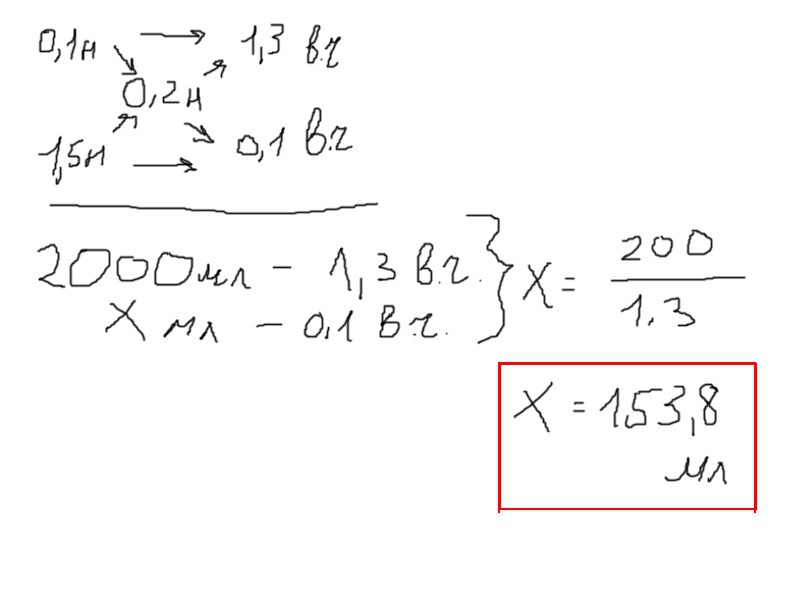 0,1н → 1,3 в.г
0,2н
1,5н → 0,1 в.г
2000мл - 1,3 в.г. } X = 200 / 1.3
X мл - 0,1 в.г.
X = 153,8
мл